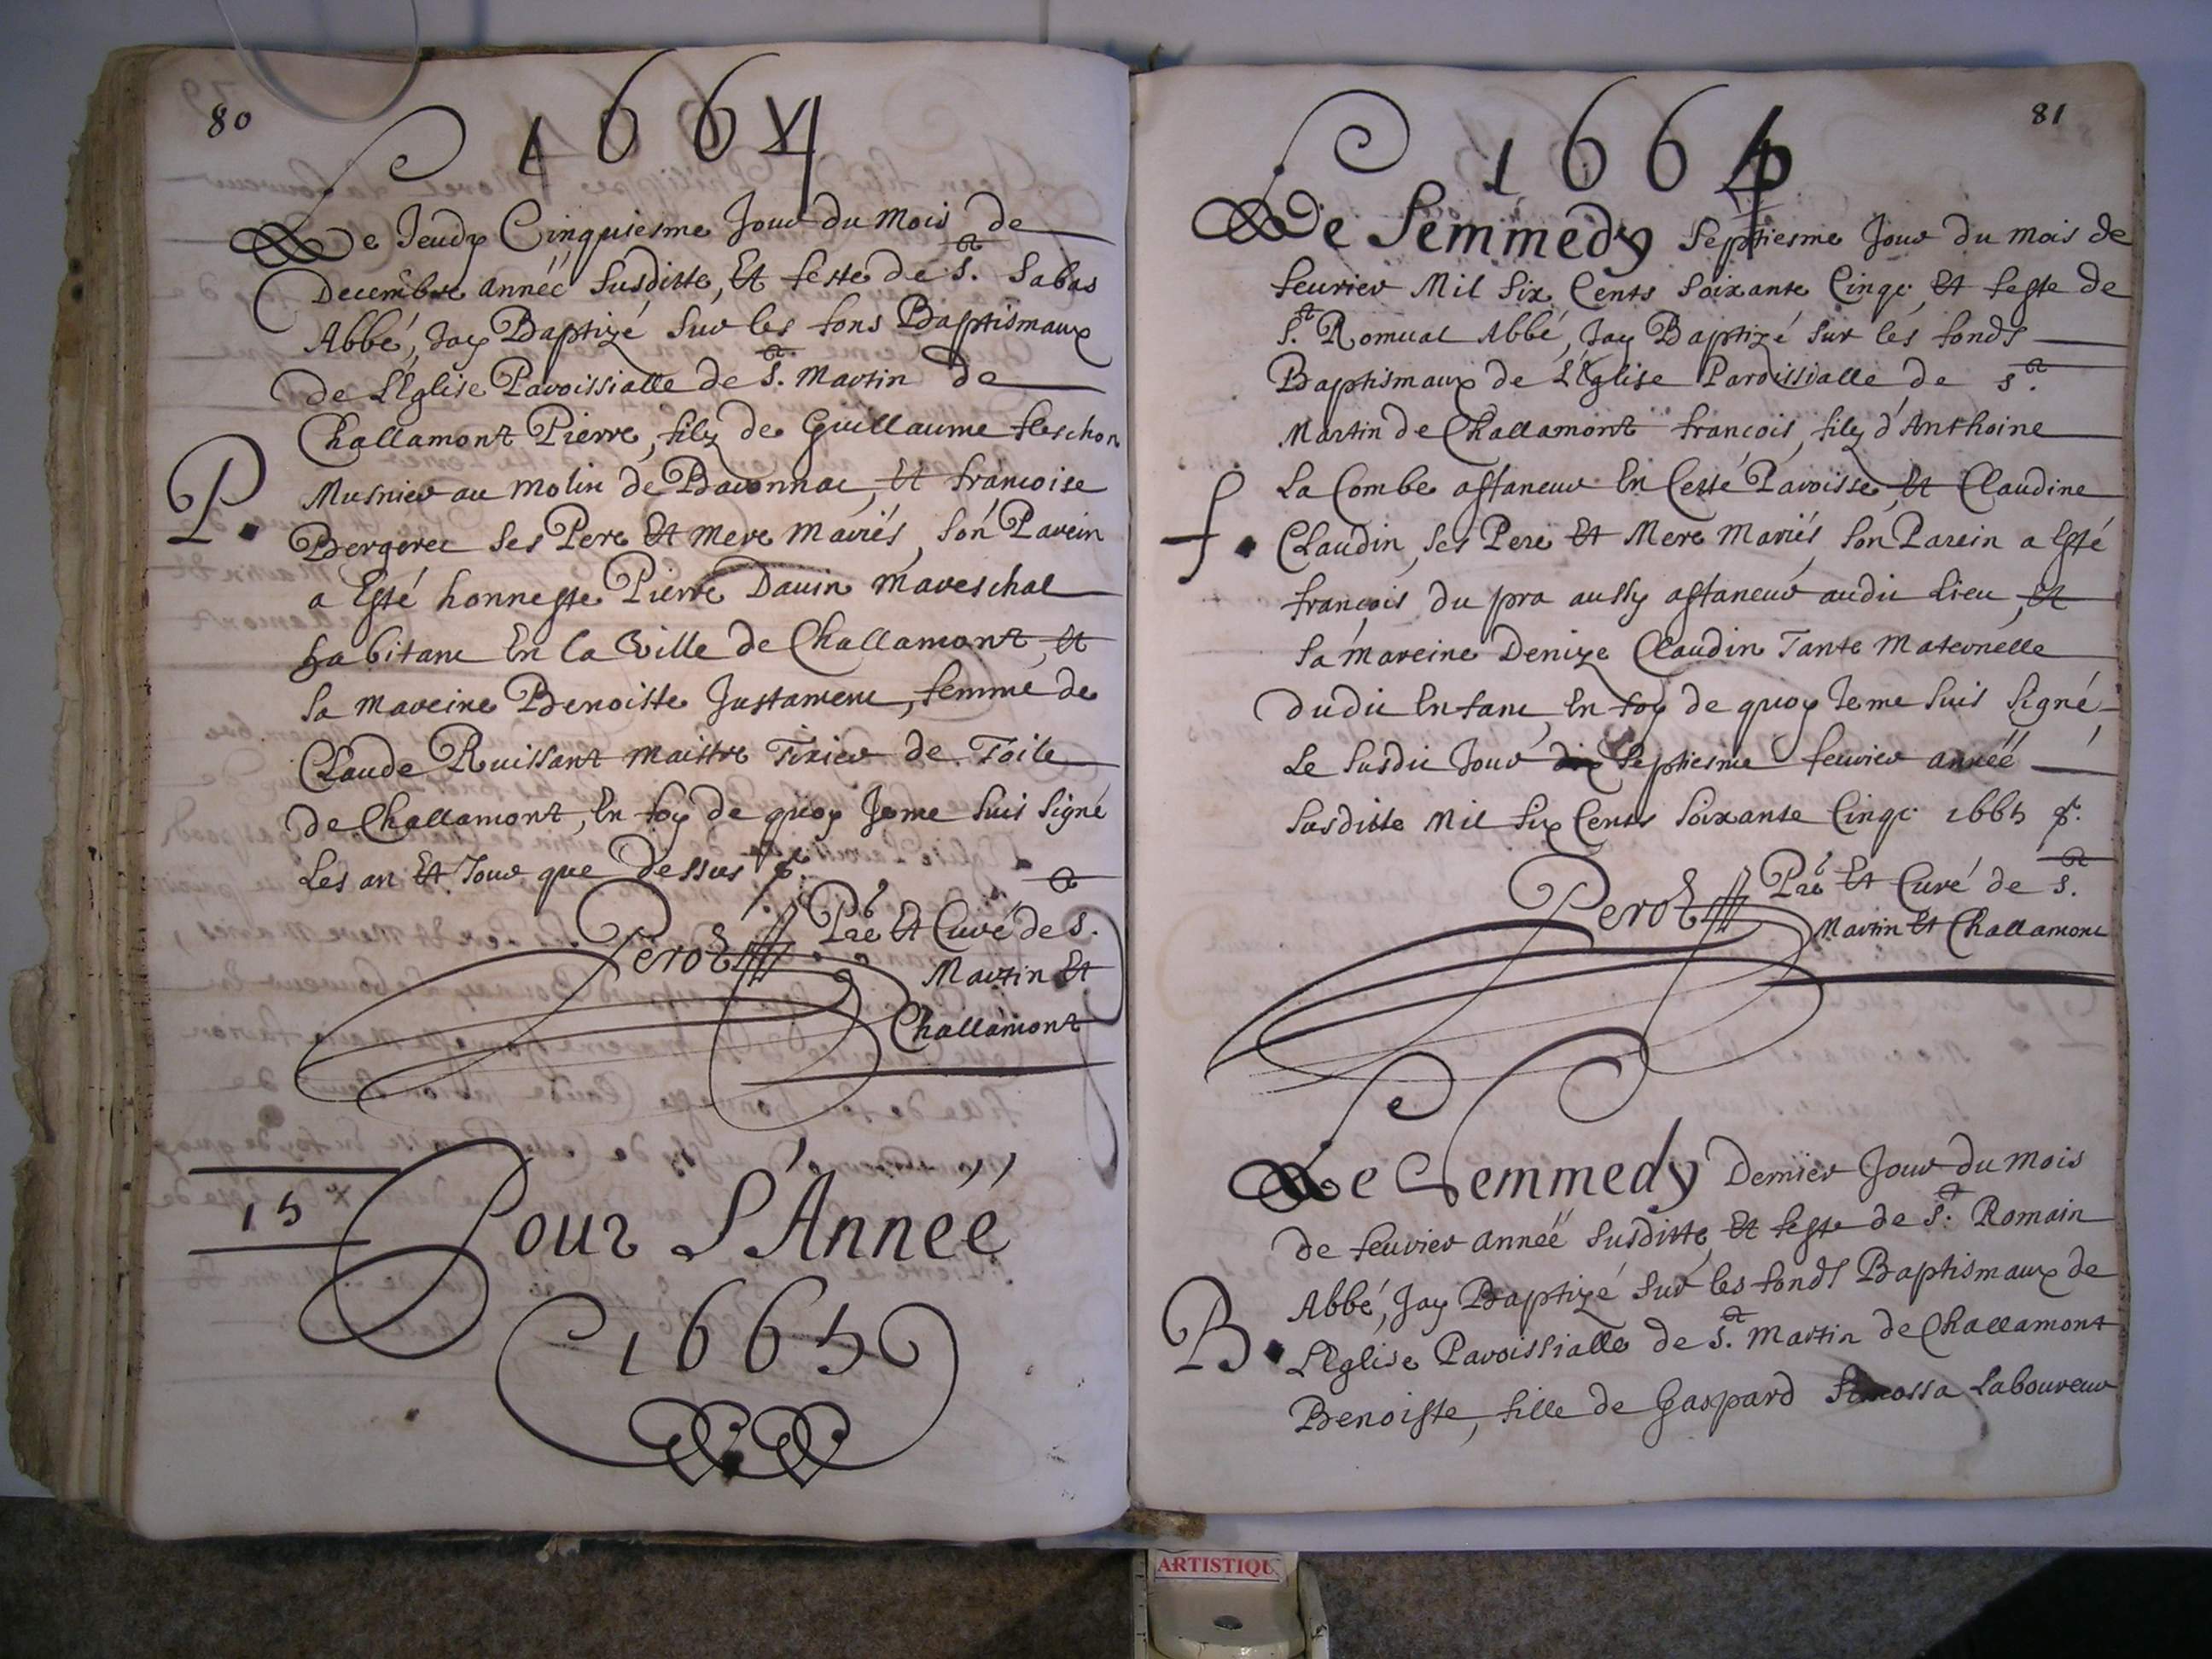 80
1664
Le Jeudy Cinquiesme Jour du Mois de
Decembre année susditte, Et feste de St. Sabas
Abbé, Jay Baptizé sur les fons Baptismaux
de L'Eglise Paroissialle de St. Martin de
Challamont Pierre, filz de Guillaume fleschon
P. Musnier au molin de Baronnat, Et francoise
Bergeret ses Pere Et mere mariés, son Parein
a Esté honneste Pierre Dauin mareschal
habitant En la Ville de Challamont, Et
sa mareine Benoiste Justament, femme de
Claude Ruissant maistre Tixier de Toile
de Challamont, En foy de quoy Je me suis signé
Les an Et Jour que dessus
Perot Pbre Et Curé de St.
Martin Et
Challamont
15
Pour L'Année
1665
81
166
Le Semmedy Septiesme Jour du mois de
feurier Mil Six Cents soixante Cinqc Et feste de
St. Romual Abbé, Jay Baptizé sur les fonds
Baptismaux de L'Eglise Paroissialle de St.
Martin de Challamont francois, filz d'Anthoine
La Combe astaneur En Cette Paroisse Et Claudine
f. Claudin, ses Pere Et Mere mariés, son Parein a Esté
francois du pra aussy astaneur audit Lieu, Et
sa mareine Denize Claudin Tante Maternelle
dudit Enfant, En foy de quoy Je me suis signé
Le susdit Jour Septiesme feurier année
susditte Mil six Cents soixante Cinqc 1665
Perot Pbre Et Curé de St.
Martin Et Challamont
Le Semmedy Dernier Jour du mois
de feurier année susditte, Et feste de St. Romain
Abbé, Jay Baptizé sur les fonds Baptismaux de
B. L'Eglise Paroissialle de St. Martin de Challamont
Benoiste, fille de Gaspard Laboureur
ARTISTIQU